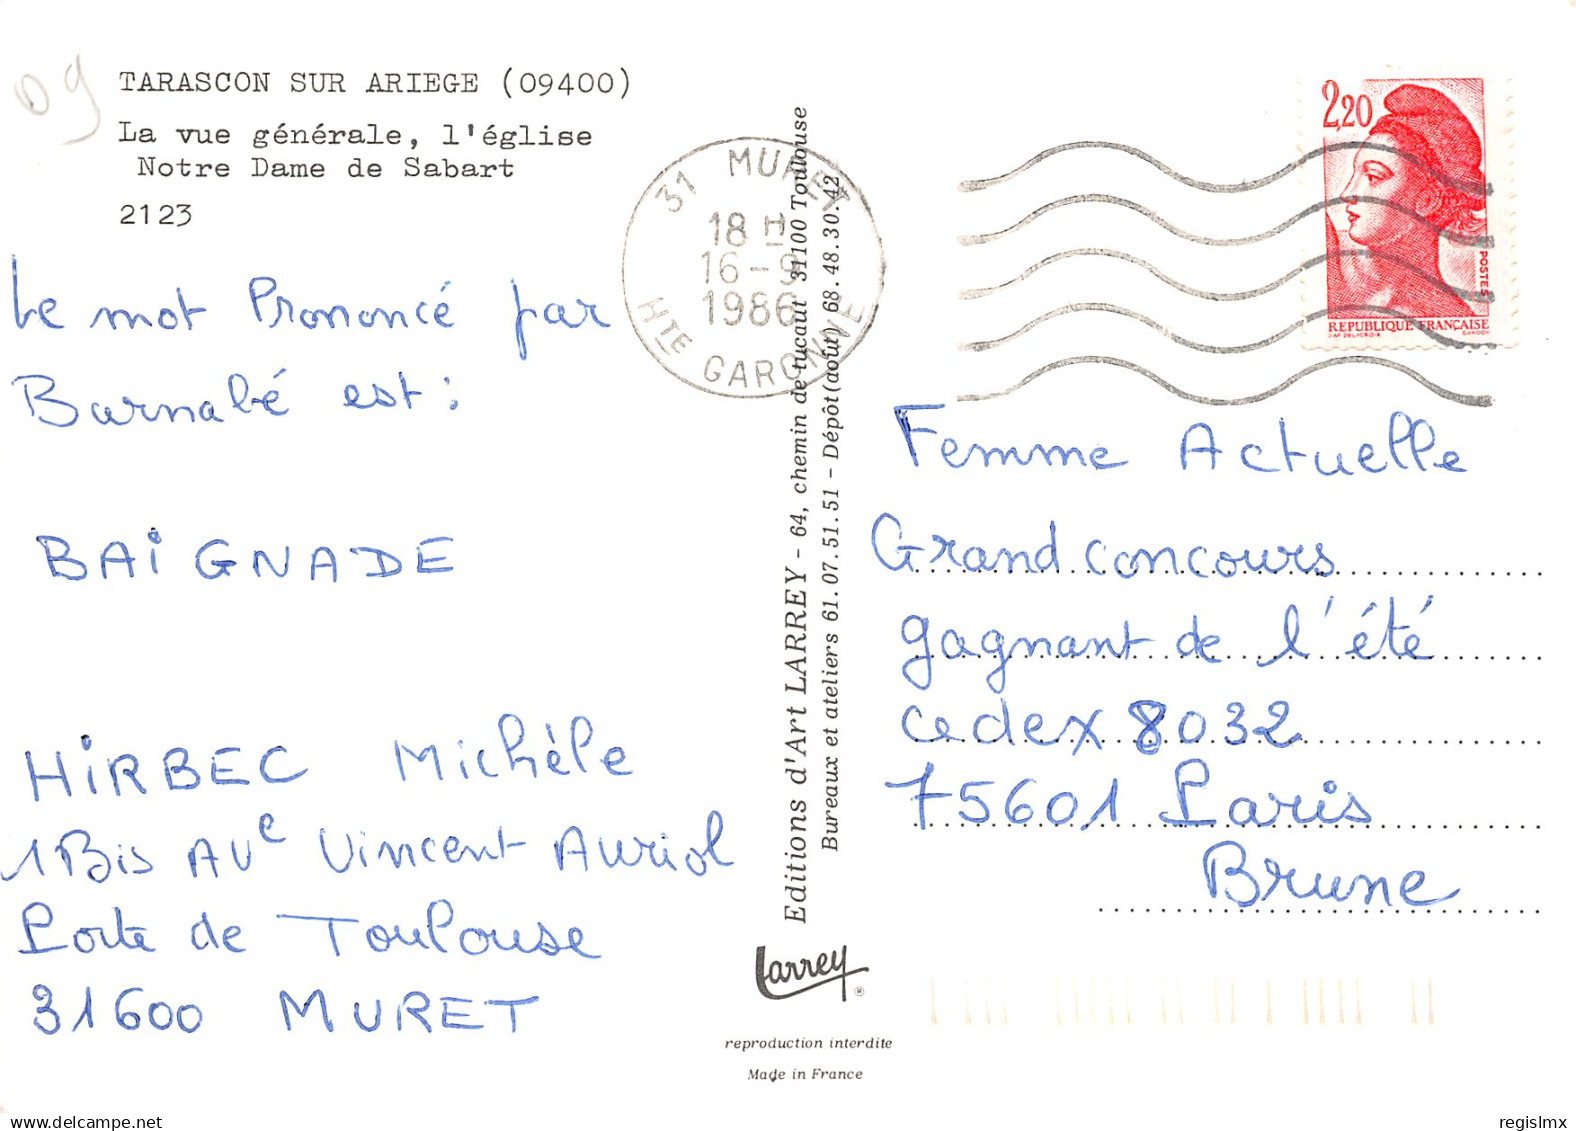 09
TARASCON SUR ARIEGE (09400)
La vue générale, l'église
Notre Dame de Sabart
2123
Le mot Prononcé par
Barnabé est :
BAiGNADE
HiRBEC Michèle
1 Bis AVe Vincent Auriol
Porte de Toulouse
31600 MURET
31 MURET
18 H
16-9
1986
HTE GARONNE
Editions d'Art LARREY - 64, chemin de tucaut 31100 Toulouse
Bureaux et ateliers 61.07.51.51 - Dépôt (août) 68.48.30.42
Larrey
®
reproduction interdite
Made in France
2,20
POSTES
REPUBLIQUE FRANÇAISE
D'AP. DELACROIX GANDON
Femme Actuelle
Grand concours
gagnant de l'été
cedex 8032
75601 Paris
Brune
regislmx